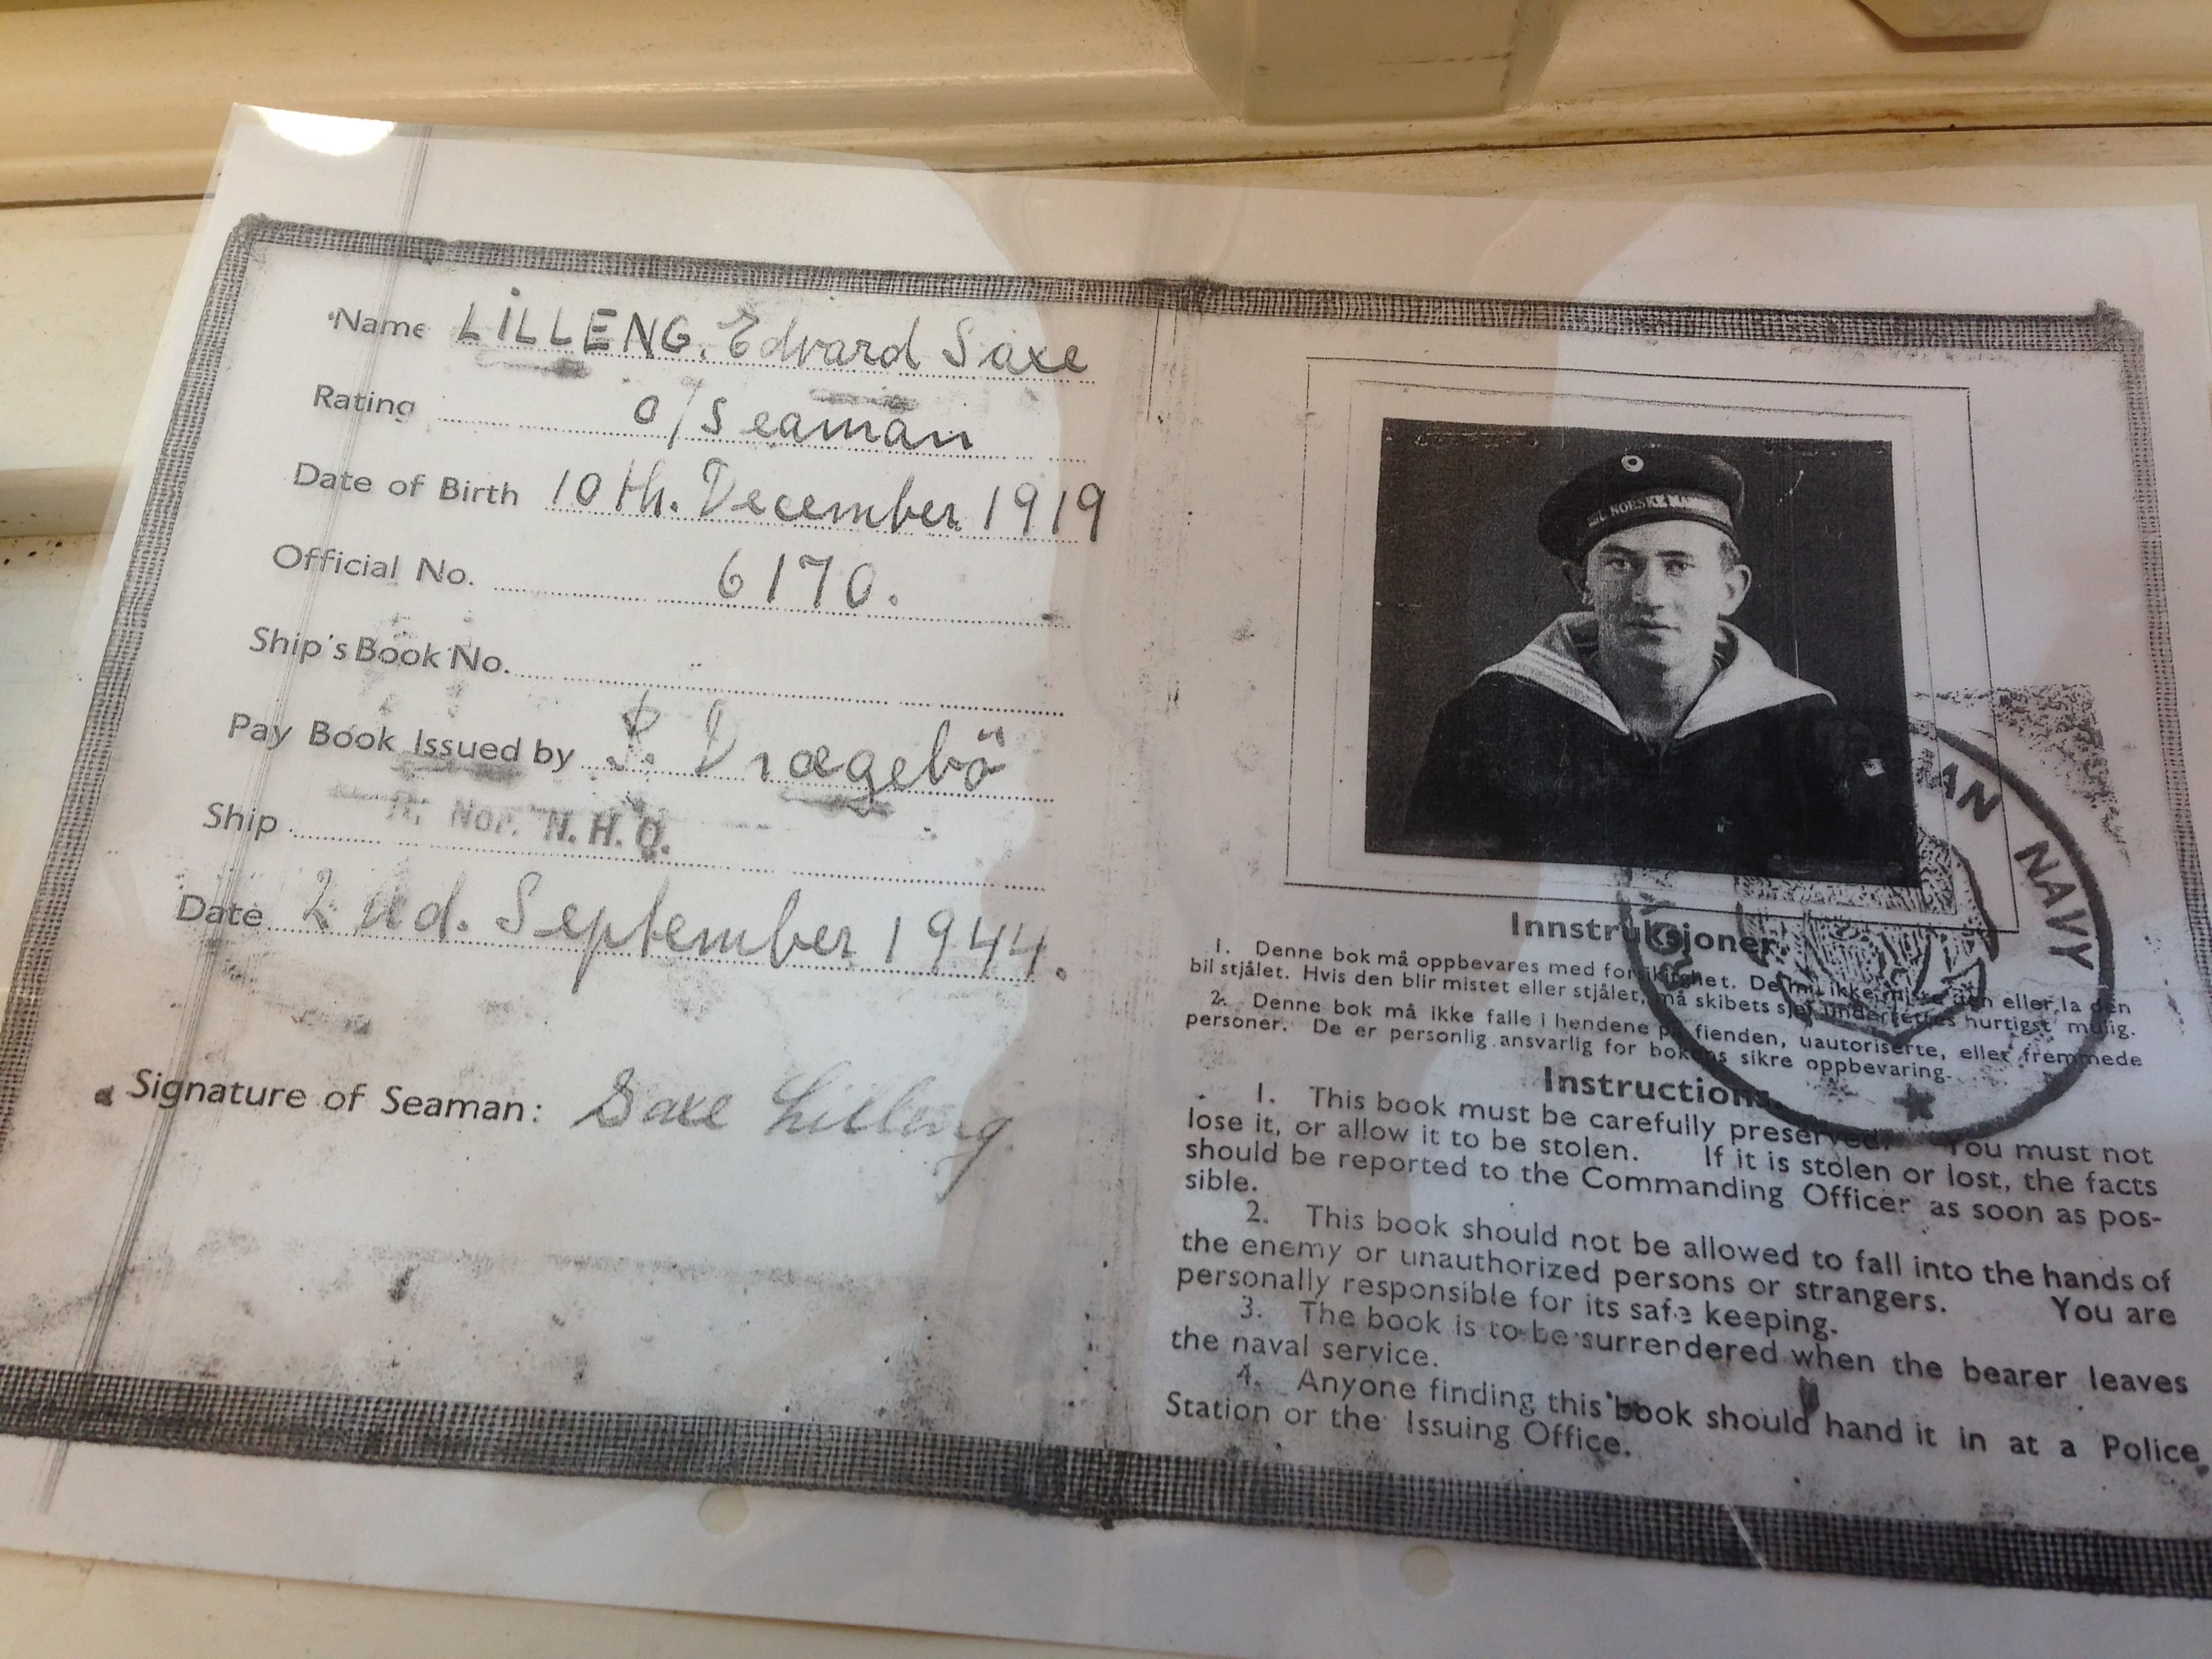 Name LILLENG, Edvard Saxe
Rating O/Seaman
Date of Birth 10th. December 1919
Official No. 6170.
Ship's Book No.
Pay Book Issued by P. Drægebö
Ship R. Nor. N.H.Q.
Date 2nd. September 1944.
Signature of Seaman: Saxe Lilleng
NORSKE
NAVY
Innstruksjoner
1. Denne bok må oppbevares med forsiktighet. De må ikke miste den eller la den
bil stjålet. Hvis den blir mistet eller stjålet, må skibets sjef underrettes hurtigst mulig.
2. Denne bok må ikke falle i hendene på fienden, uautoriserte, eller fremmede
personer. De er personlig ansvarlig for bokens sikre oppbevaring.
Instructions
1. This book must be carefully preserved. You must not
lose it, or allow it to be stolen. If it is stolen or lost, the facts
should be reported to the Commanding Officer as soon as pos-
sible.
2. This book should not be allowed to fall into the hands of
the enemy or unauthorized persons or strangers. You are
personally responsible for its safe keeping.
3. The book is to be surrendered when the bearer leaves
the naval service.
4. Anyone finding this book should hand it in at a Police
Station or the Issuing Office.